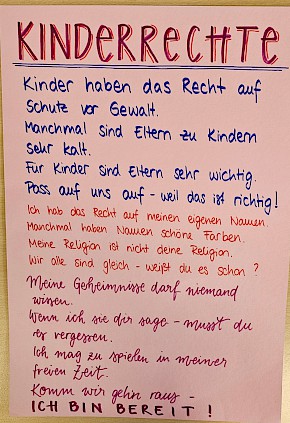 KINDERRECHTE
Kinder haben das Recht auf
Schutz vor Gewalt.
Manchmal sind Eltern zu Kindern
sehr kalt.
Für Kinder sind Eltern sehr wichtig.
Pass auf uns auf - weil das ist richtig!
Ich hab das Recht auf meinen eigenen Namen.
Manchmal haben Namen schöne Farben.
Meine Religion ist nicht deine Religion.
Wir alle sind gleich - weißt du es schon ?
Meine Geheimnisse darf niemand
wissen.
Wenn ich sie dir sage - musst du
es vergessen.
Ich mag zu spielen in meiner
freien Zeit.
Komm wir gehn raus -
ICH BIN BEREIT !